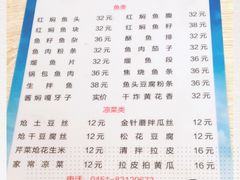 鱼类
红焖鱼头 32元 红焖鱼腹 38元
红焖鱼块 32元 红焖鱼尾 32元
鱼籽鱼杂 36元 酥鱼排 38元
鱼肉粉条 32元 鱼肉茄子 32元
熘鱼片 32元 熘鱼段 32元
锅包鱼肉 36元 焦烧鱼条 36元
生拌鱼 36元 鱼头豆腐粉条 36元
酱焖嘎牙子 实价 干炸黄花香 32元
凉菜类
炝土豆丝 12元 金针蘑拌瓜丝 12元
炝干豆腐丝 12元 松花豆腐 12元
芹菜炝花生米 12元 清拌拉皮 16元
家常凉菜 12元 拉皮拍黄瓜 16元
电话 0451-82120672